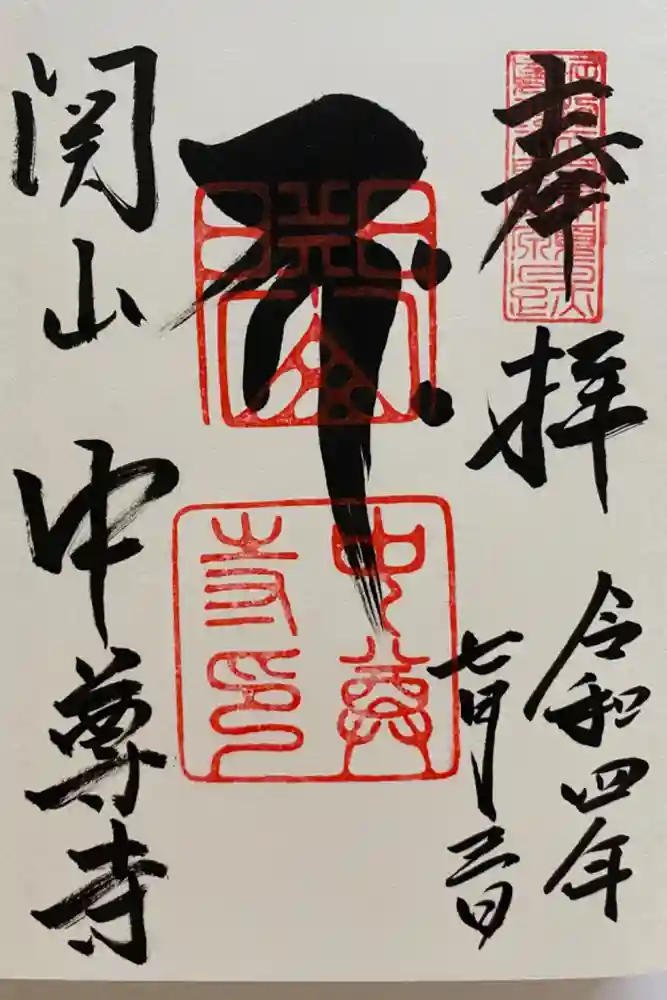 奉拝
令和四年
七月三日
中尊
寺印
関山
中尊寺